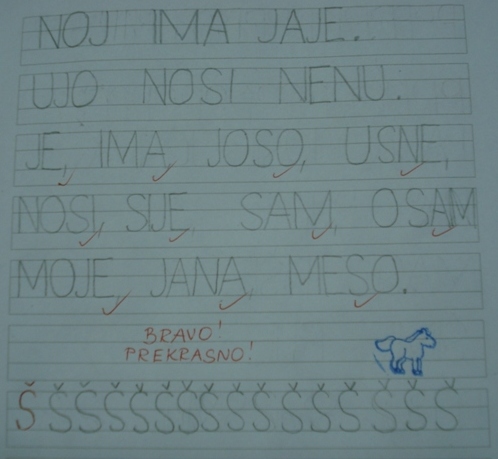 NOJ IMA JAJE.
UJO NOSI NENU.
JE, IMA, JOSO, USNE,
NOSI, SIJE, SAM, OSAM
MOJE, JANA, MESO.
BRAVO!
PREKRASNO!
Š Š Š Š Š Š Š Š Š Š Š Š Š Š Š Š